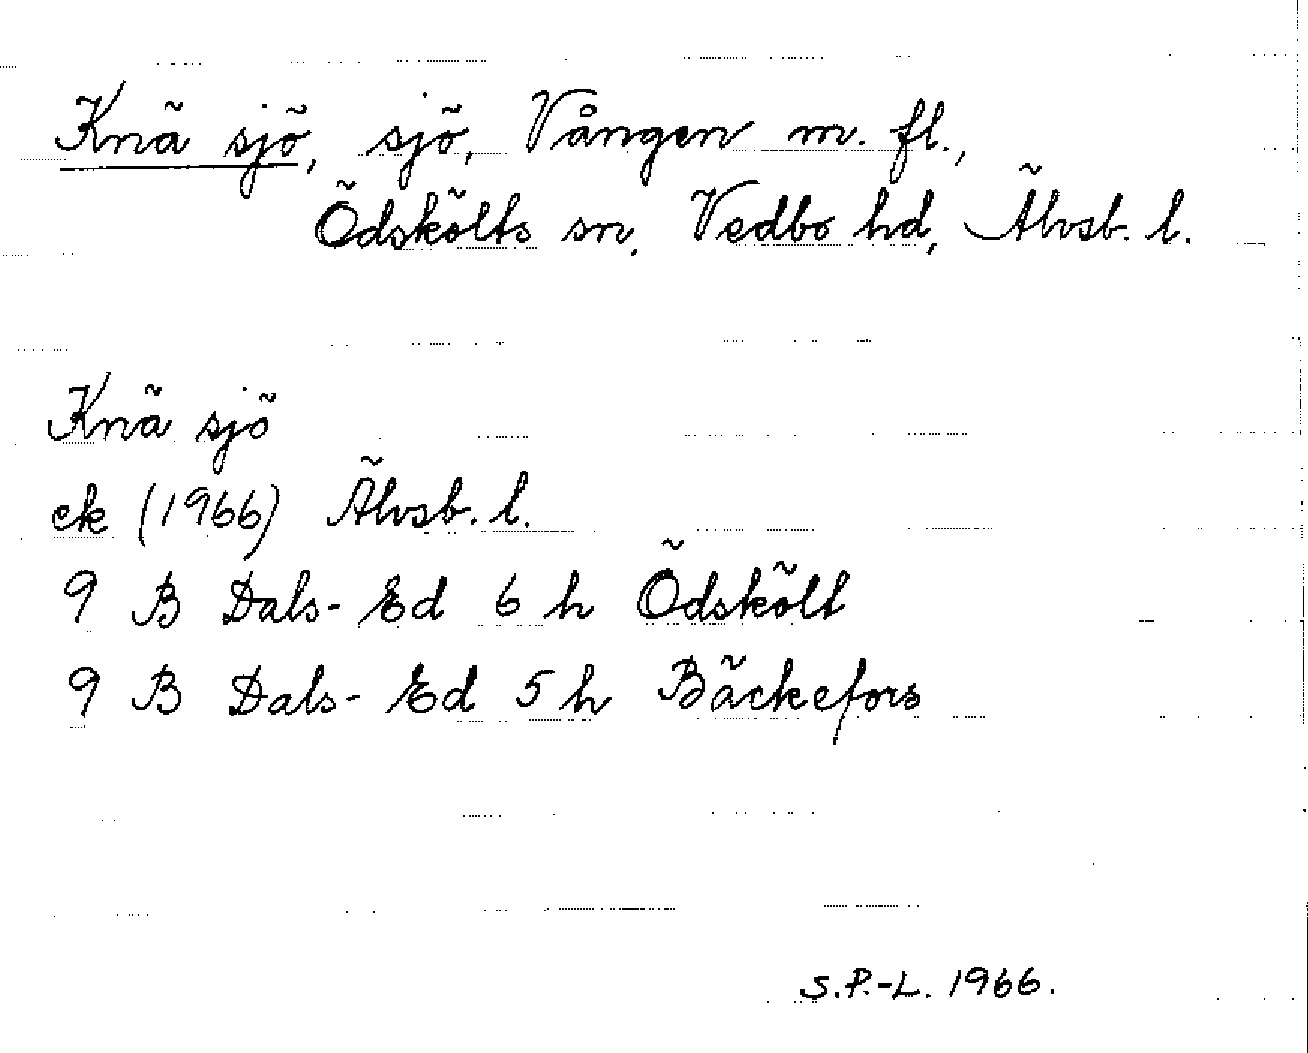 Knä sjö, sjö, Vången m. fl.,
Ödskölts sn, Vedbo hd, Älvsb. l.
Knä sjö
ek (1966) Älvsb. l.
9 B Dals-Ed 6 h Ödskölt
9 B Dals-Ed 5 h Bäckefors
S.P.-L. 1966.